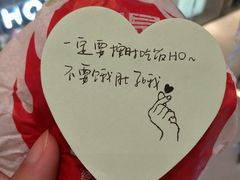 HO
一定要按时吃饭HO~
不要饿肚子哦